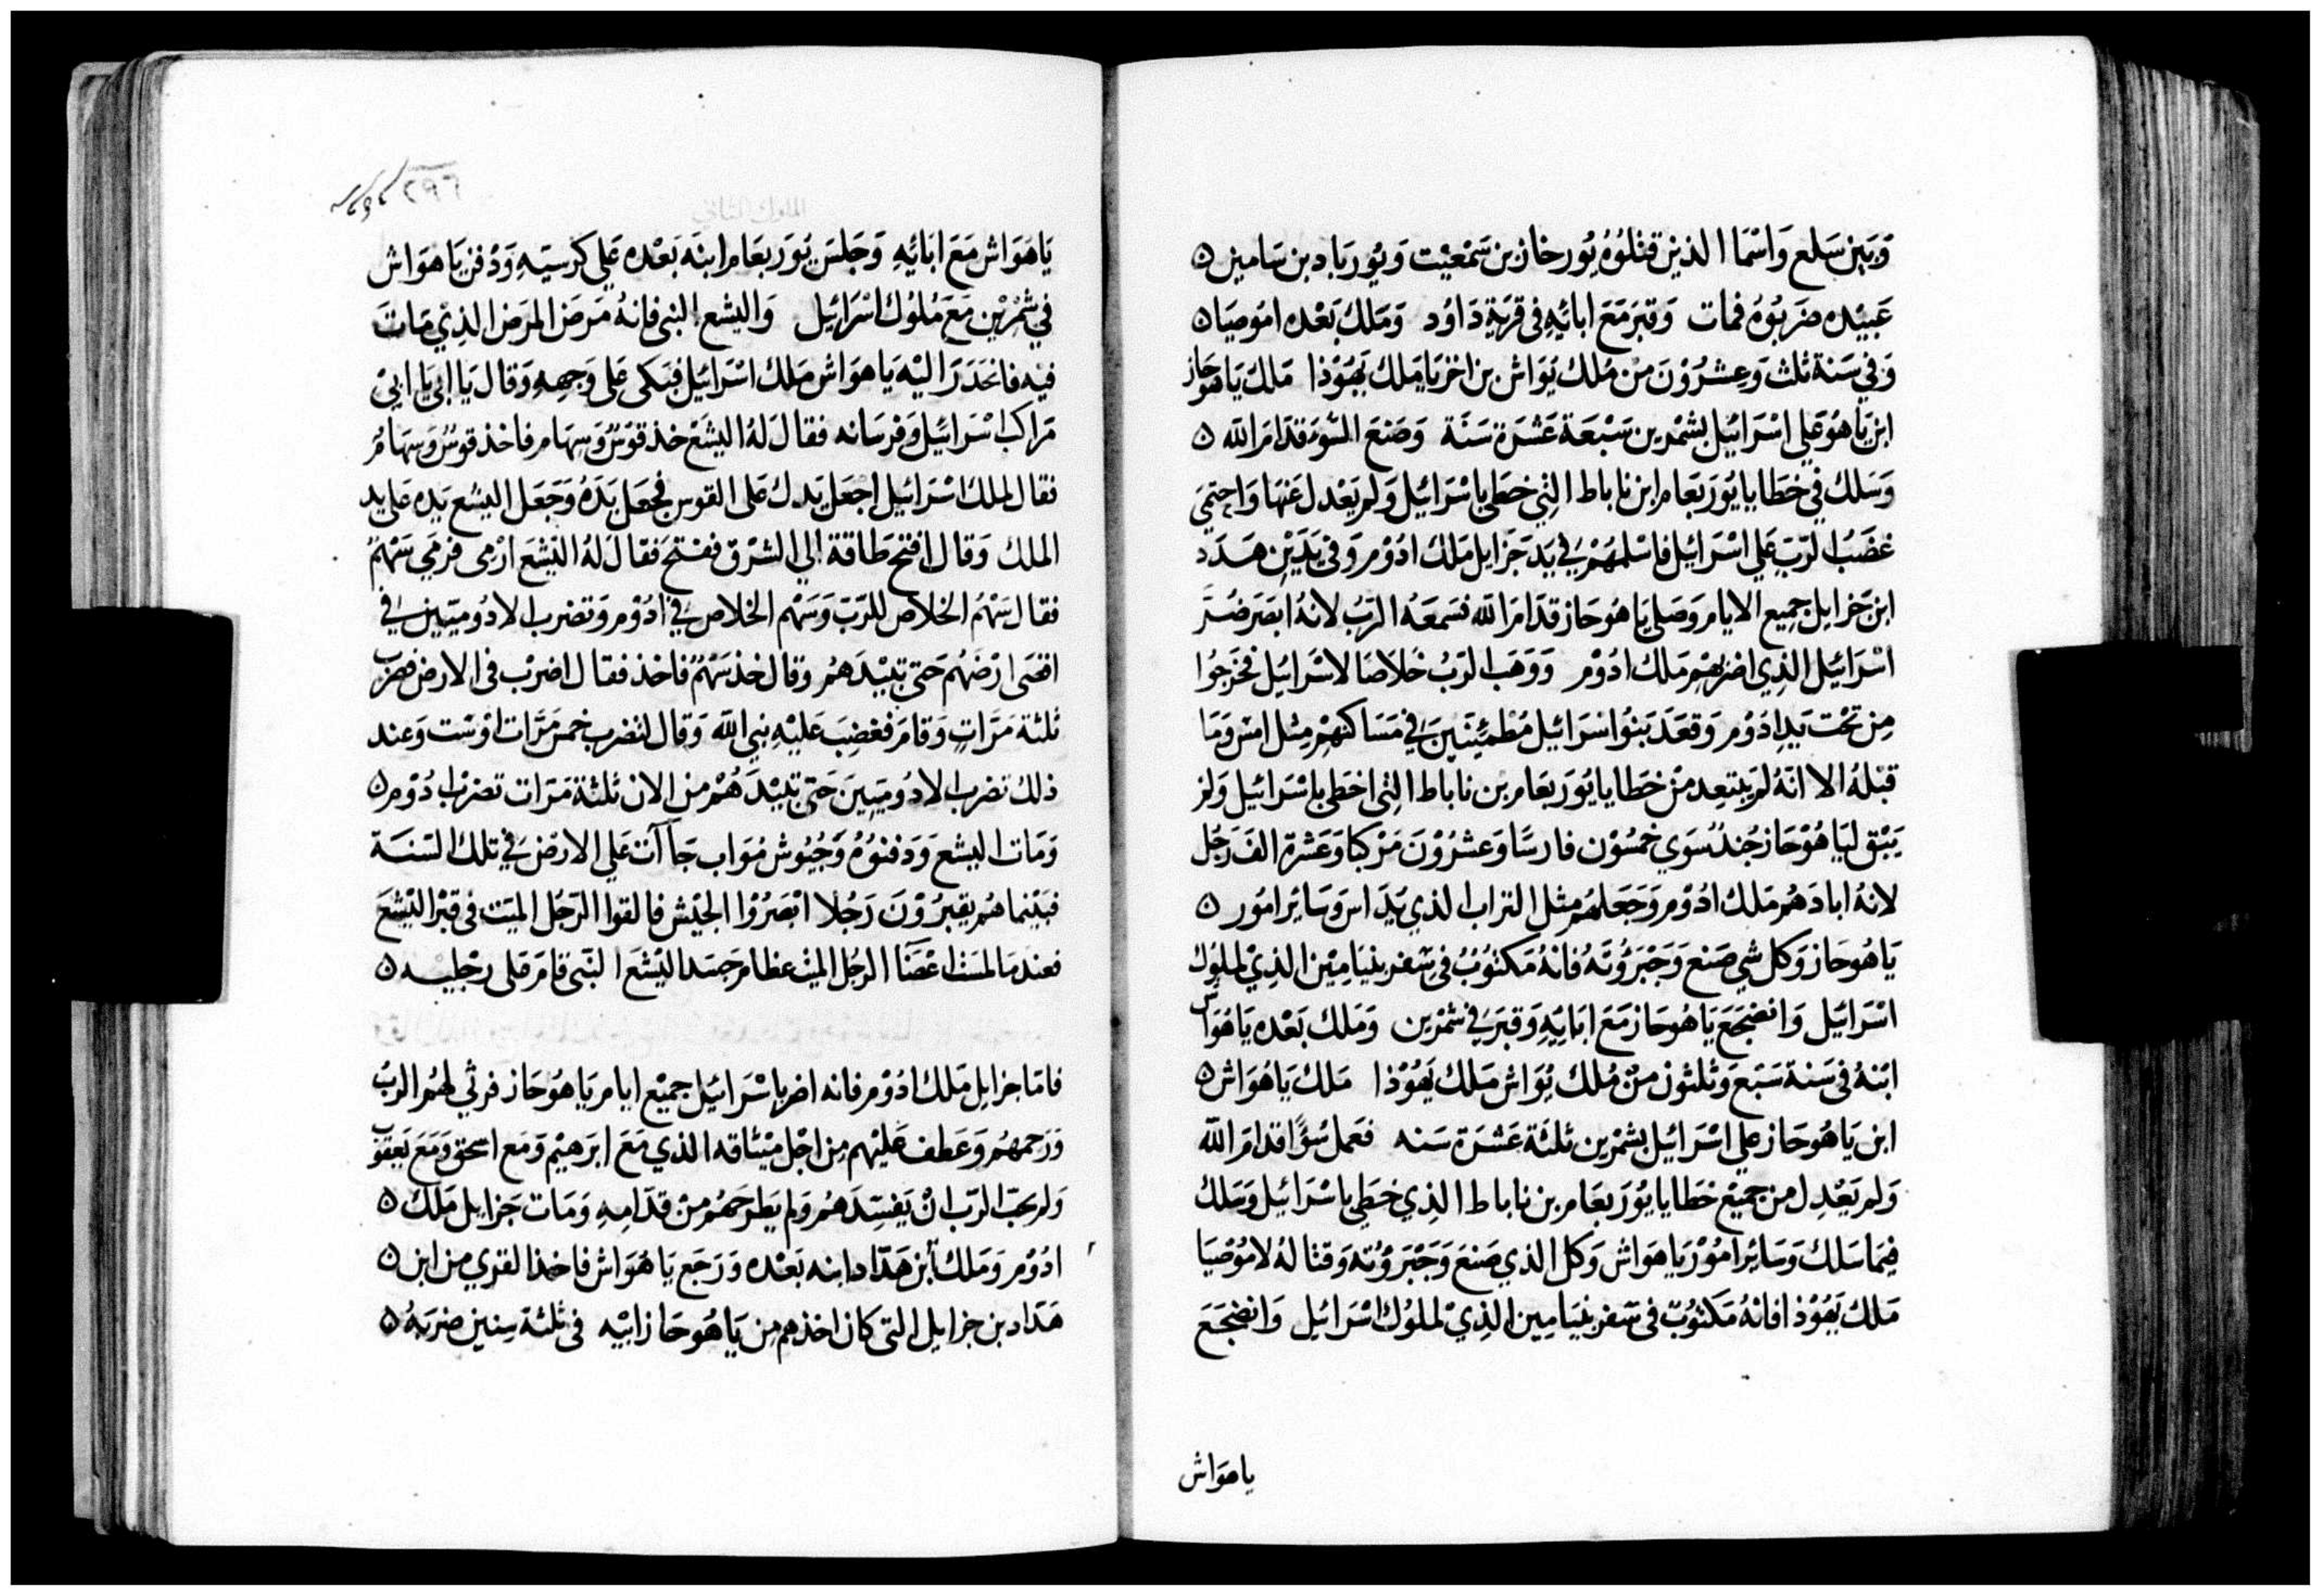 وَبَين سَلع وَاسْمَا الذين قتلُوهُ يُورخاز بن سَمْعَيْت وَيُورياد بن سَامين ٥
عَبيْده ضرَبُوهُ فمات وَقبرَ مَعَ ابائِهِ فى قريَةِ دَاوُد وَمَلك بَعْده امُوصيَا ٥
وَفي سَنة ثلث وَعِشرُوْنَ منْ مُلك يُوَاش بن اخزيَا مَلك يَهُوْذا مَلك يَاهُوحَاز
ابن يَاهُو عَلي اسْرَائيل بشمْرين سَبْعَة عَشرَة سَنَة وَصَنعَ السُّوءَ قدامَ الله ٥
وَسَلك في خطايا يُوَربعَام ابن ناباط التِي خطي باسْرَائيل وَلم يَعْدل عَنهَا وَاحتمَي
غضَبُ الرَّب عَلي اسْرَائيل فاسْلمهُمْ في يَد جَزايل مَلك ادُوْم وَفى يَدَيْن هَدَد
ابن جَزايل جميع الايام وَصَلي يَاهُوحَاز قدامَ الله فسَمعَهُ الرَّبُ لانهُ ابصَرَ ضُرَّ
اسْرَائيل الذِي اضربهِمِ مَلك ادُوْم وَوَهَب الرّبُ خلاصًا لاسْرَائيل فخرَجُوا
مِن تحْت يَدِ ادوُم وَقعَدَ بَنوُا اسرَائيل مُطْمئِنينَ في مَسَاكنهِمْ مِثل امْس وَمَا
قبْلهُ الا انهُ لم يَبتعِد منْ خطايا يُوَربَعَام بن ناباط التِى اخطي باسْرَائيل وَلم
يَبْق ليَاهُوْحَاز جُندٌ سُوَي خمسُوْن فارسًا وَعشرُوْنَ مَرْكبا وَعَشرة الفَ رَجُل
لانهُ ابادَهُم مَلك ادُوْم وَجَعَلهُم مثل التراب الذي يَدَاس وَسَائر امُور ٥
يَاهُوحَاز وَكل شي صَنع وَجَبَرُوْتهُ فانهُ مَكتوُبُ في سَفر بنيَامِيْن الذِيْ لملوُك
اسْرَائيل وَانضجَعَ يَاهُوحَاز مَعَ ابَائِهِ وَقبرَ في شمْرين وَمَلك بَعْده يَاهُوَاش
ابْنهُ فى سَنة سَبَع وَثلثون منْ مُلك يُوَاش مَلك يَهُوْذا مَلك يَاهُوَاش ٥
ابن يَاهُوحَاز علي اسْرَائيل بشمْرين ثلثة عَشرَة سَنه فعَمل سُوًا قدامَ الله
وَلم يَعْدِل من جميْع خطايا يُوْرَبعَام بن ناباط الذِي خطَي باسْرَائيل وَسَلك
فيمَا سَلك وَسَائر امُوْر يَاهوَاش وَكل الذي صَنعَ وَجَبَروُته وَقتاله لامُوْصيَا
مَلك يَهُوْذا فانهُ مَكتوُبٌ فى سَفر بنيَامِين الذِيْ لملوُك اسْرَائيل وَانضجَعَ
ياهوَاش
٢٩٦
الملوك الثاني
يَاهوَاش مَعَ ابَائِهِ وَجَلسَ يُوَربعَام ابنَه بَعْده عَلي كرسيّهِ وَدُفن يَاهوَاش
في شمُرين مَعَ مُلوُك اسْرَائيل وَاليشع النبى فانهُ مَرضَ المرَض الذِيْ مَات
فيْه فانحَدرَ اليْه يَاهوَاش مَلك اسْرَائيل فبَكى عَلي وَجههِ وَقال يَا ابى يَا ابيْ
مَراكب اسْرَائيل وَفرسَانه فقالَ لهُ اليشعْ خذ قوْسٌ وَسِهام فاخذ قوسٌ وَسهَامٌ
فقال لملك اسْرَائيل اجعَل يَدك عَلى القوس فجعَل يَدَهُ وَجَعَل اليشع يَده عَلي يد
الملك وَقال افتح طاقة الي الشرْق ففتحَ فقالَ لهُ اليشعَ ارْمى فرمَي سَهْمٌ
فقال سَهْمُ الخلاص للرّبّ وَسَهْم الخلاص في ادُوْم وَتضرب الادُوميّين في
اقصَى ارْضهُم حَتى تبيْدَهُم وَقال خذ سَهْمٌ فاخذ فقال اضربْ فى الارض فضرب
ثلثة مَرَّاتٍ وَقامَ فغضِبَ عَليْهِ نبي الله وَقال لتضرب خمس مَرَّات اوْ ست وَعند
ذلك تضرب الادُوميّينَ حَتى تبيْدَهُمْ من الان ثلثة مَرَات تضربْ ادُوْم ٥
وَمَات اليشع وَدَفنوُهُ وَجُيُوش مُوَاب جَآات عَلي الارْض في تلك السّنَة
فبَيْنما هُم يقبرُوْنَ رَجُلا ابْصَرُوْا الجيْش فالقوا الرّجُل الميّت في قبْر اليْشعَ
فعندمَا لمسَت اعْضَا الرجُل الميْت عظام جَسَد اليْشعَ النّبى قامَ علي رجْليْه ٥
فامَا جزايل مَلك ادُوْم فانه اضر باسْرَائيل جميْع ايام يَاهُوحَاز فرثي لهُم الربّ
وَرَحمهُم وَعَطف عَليْهم مِن اجْل ميْثاقه الذي مَعَ ابرَهيْم وَمَع اسحق وَمَعَ يَعقوُب
وَلم يحبّ الرّب انْ يَفسِدَهُم وَلم يَطرَحهُم منْ قدّامِهِ وَمَات جَزايل مَلك ٥
ادُوْم وَمَلك ابن هَدّاد ابنه بَعْده وَرَجَع يَاهُوَاش فاخذ القري من ابن ٥
هَدّاد بن جزايل التى كان اخذهم من يَاهُوحَاز ابيْه فى ثلثة سِنين ضربَهُ ٥